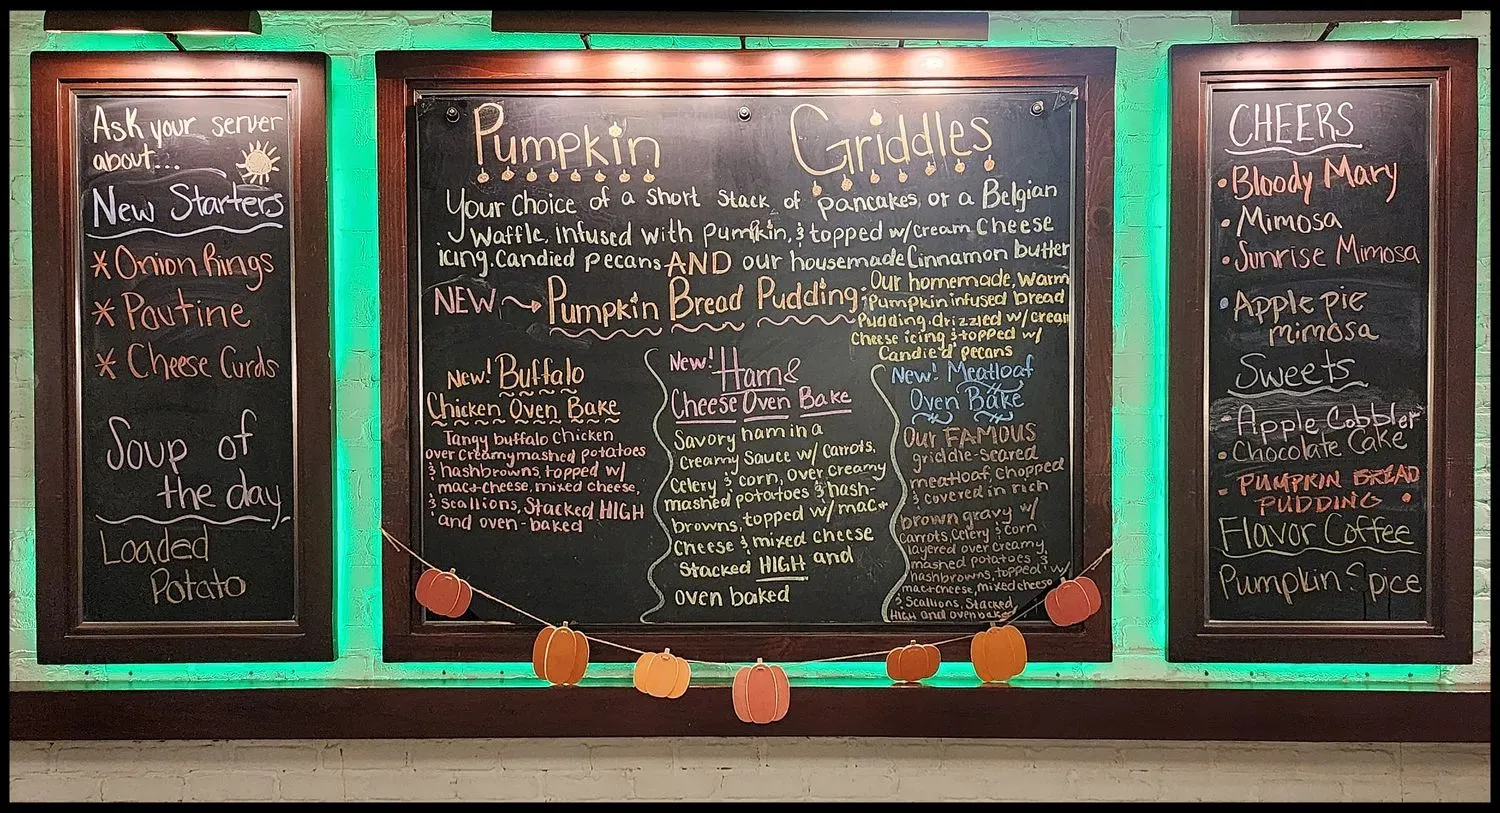 Ask your server
about...
New Starters
* Onion Rings
* Poutine
* Cheese Curds
Soup of
the day
Loaded
Potato
Pumpkin Griddles
Your choice of a short stack of pancakes, or a Belgian
Waffle, infused with pumpkin, & topped w/cream cheese
icing. Candied pecans AND our housemade Cinnamon butter
NEW → Pumpkin Bread Pudding:
Our homemade, warm
pumpkin infused bread
Pudding. drizzled w/ cream
Cheese icing & topped w/
Candie'd pecans
New! Buffalo
Chicken Oven Bake
Tangy buffalo chicken
over creamy mashed potatoes
& hashbrowns, topped w/
mac+cheese, mixed cheese,
& Scallions, Stacked HIGH
and oven-baked
New! Ham &
Cheese Oven Bake
Savory ham in a
Creamy Sauce w/ carrots,
Celery & corn, over creamy
mashed potatoes & hash-
browns, topped w/ mac+
Cheese & mixed cheese
Stacked HIGH and
oven baked
New! Meatloaf
Oven Bake
Our FAMOUS
griddle-seared
meatloaf, chopped
& covered in rich
brown gravy w/
Carrots, Celery & corn
layered over creamy,
mashed potatoes &
hashbrowns, topped w/
mac+cheese, mixed cheese
& Scallions, Stacked
HIGH and oven baked
CHEERS
• Bloody Mary
• Mimosa
• Sunrise Mimosa
• Apple pie
mimosa
Sweets
• Apple Cobbler
• Chocolate Cake
• PUMPKIN BREAD
PUDDING •
Flavor Coffee
Pumpkin Spice